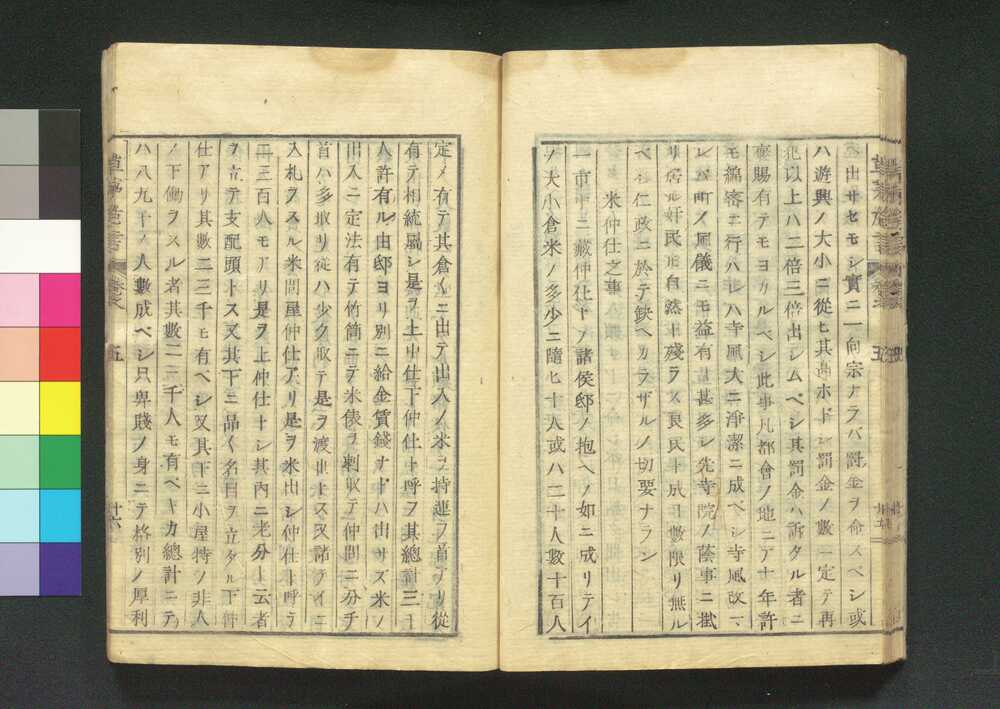 出サセモシ實ニ一向宗ナラバ罸金ヲ命スベシ或
ハ遊興ノ大小ニ從ヒ其高ホドニ罰金ノ數一定テ再
犯以上ハ二倍三倍出シムベシ其罰金ハ訴タル者ニ
賜有テモヨカルベシ此事凡都會ノ地ニテ十年許
モ綿密ニ行ハヾ寺風大ニ淨潔ニ成ベシ寺風改マ
レバ町ノ風儀ニモ益有甚多シ先寺院ノ蔭事ニ
リ居ル奸民モ自然ト殘ラス良民ト成ヿ數限リ無ル
ベシ仁政ニ於テ缺ベカラザルノ切要ナラン
米仲仕之事
一市中ニ藏仲仕トテ諸侯邸ノ抱ヘノ如ニ成リテイ
ノ大小倉米ノ多少ニ隨ヒ十人或ハ二十人數十百人
定メ有テ其倉々ニ出テ出入ノ米ヲ持運ヲ首アリ從
有テ相統屬シ是ヲ上中仕下仲仕ト呼ヲ其總計三千
人許有ル由邸ヨリ別ニ給金賃錢ナドハ出サズ米ノ
出入ニ定法有テ竹筒ニテ米俵ヲ刺取テ仲間ニ分チ
首ハ多取リ從ハ少ク取テ是ヲ渡世トス又諸テイニ
入札ヲスル米問屋仲仕アリ是ヲ米出シ仲仕ト呼テ
二三百人モアリ是ヲ上仲仕トシ其内ニ老分ト云者
ヲ立テ支配頭トス又其下ニ品々名目ヲ立タル下仲
仕アリ其數二三千モ有ベシ又其下ニ小屋持ノ非人
ノ下働ヲスル者其數一二千人モ有ベキカ總計ニテ
ハ八九千ノ人數成ベシ只卑賤ノ身ニテ格別ノ厚利
五
廿六